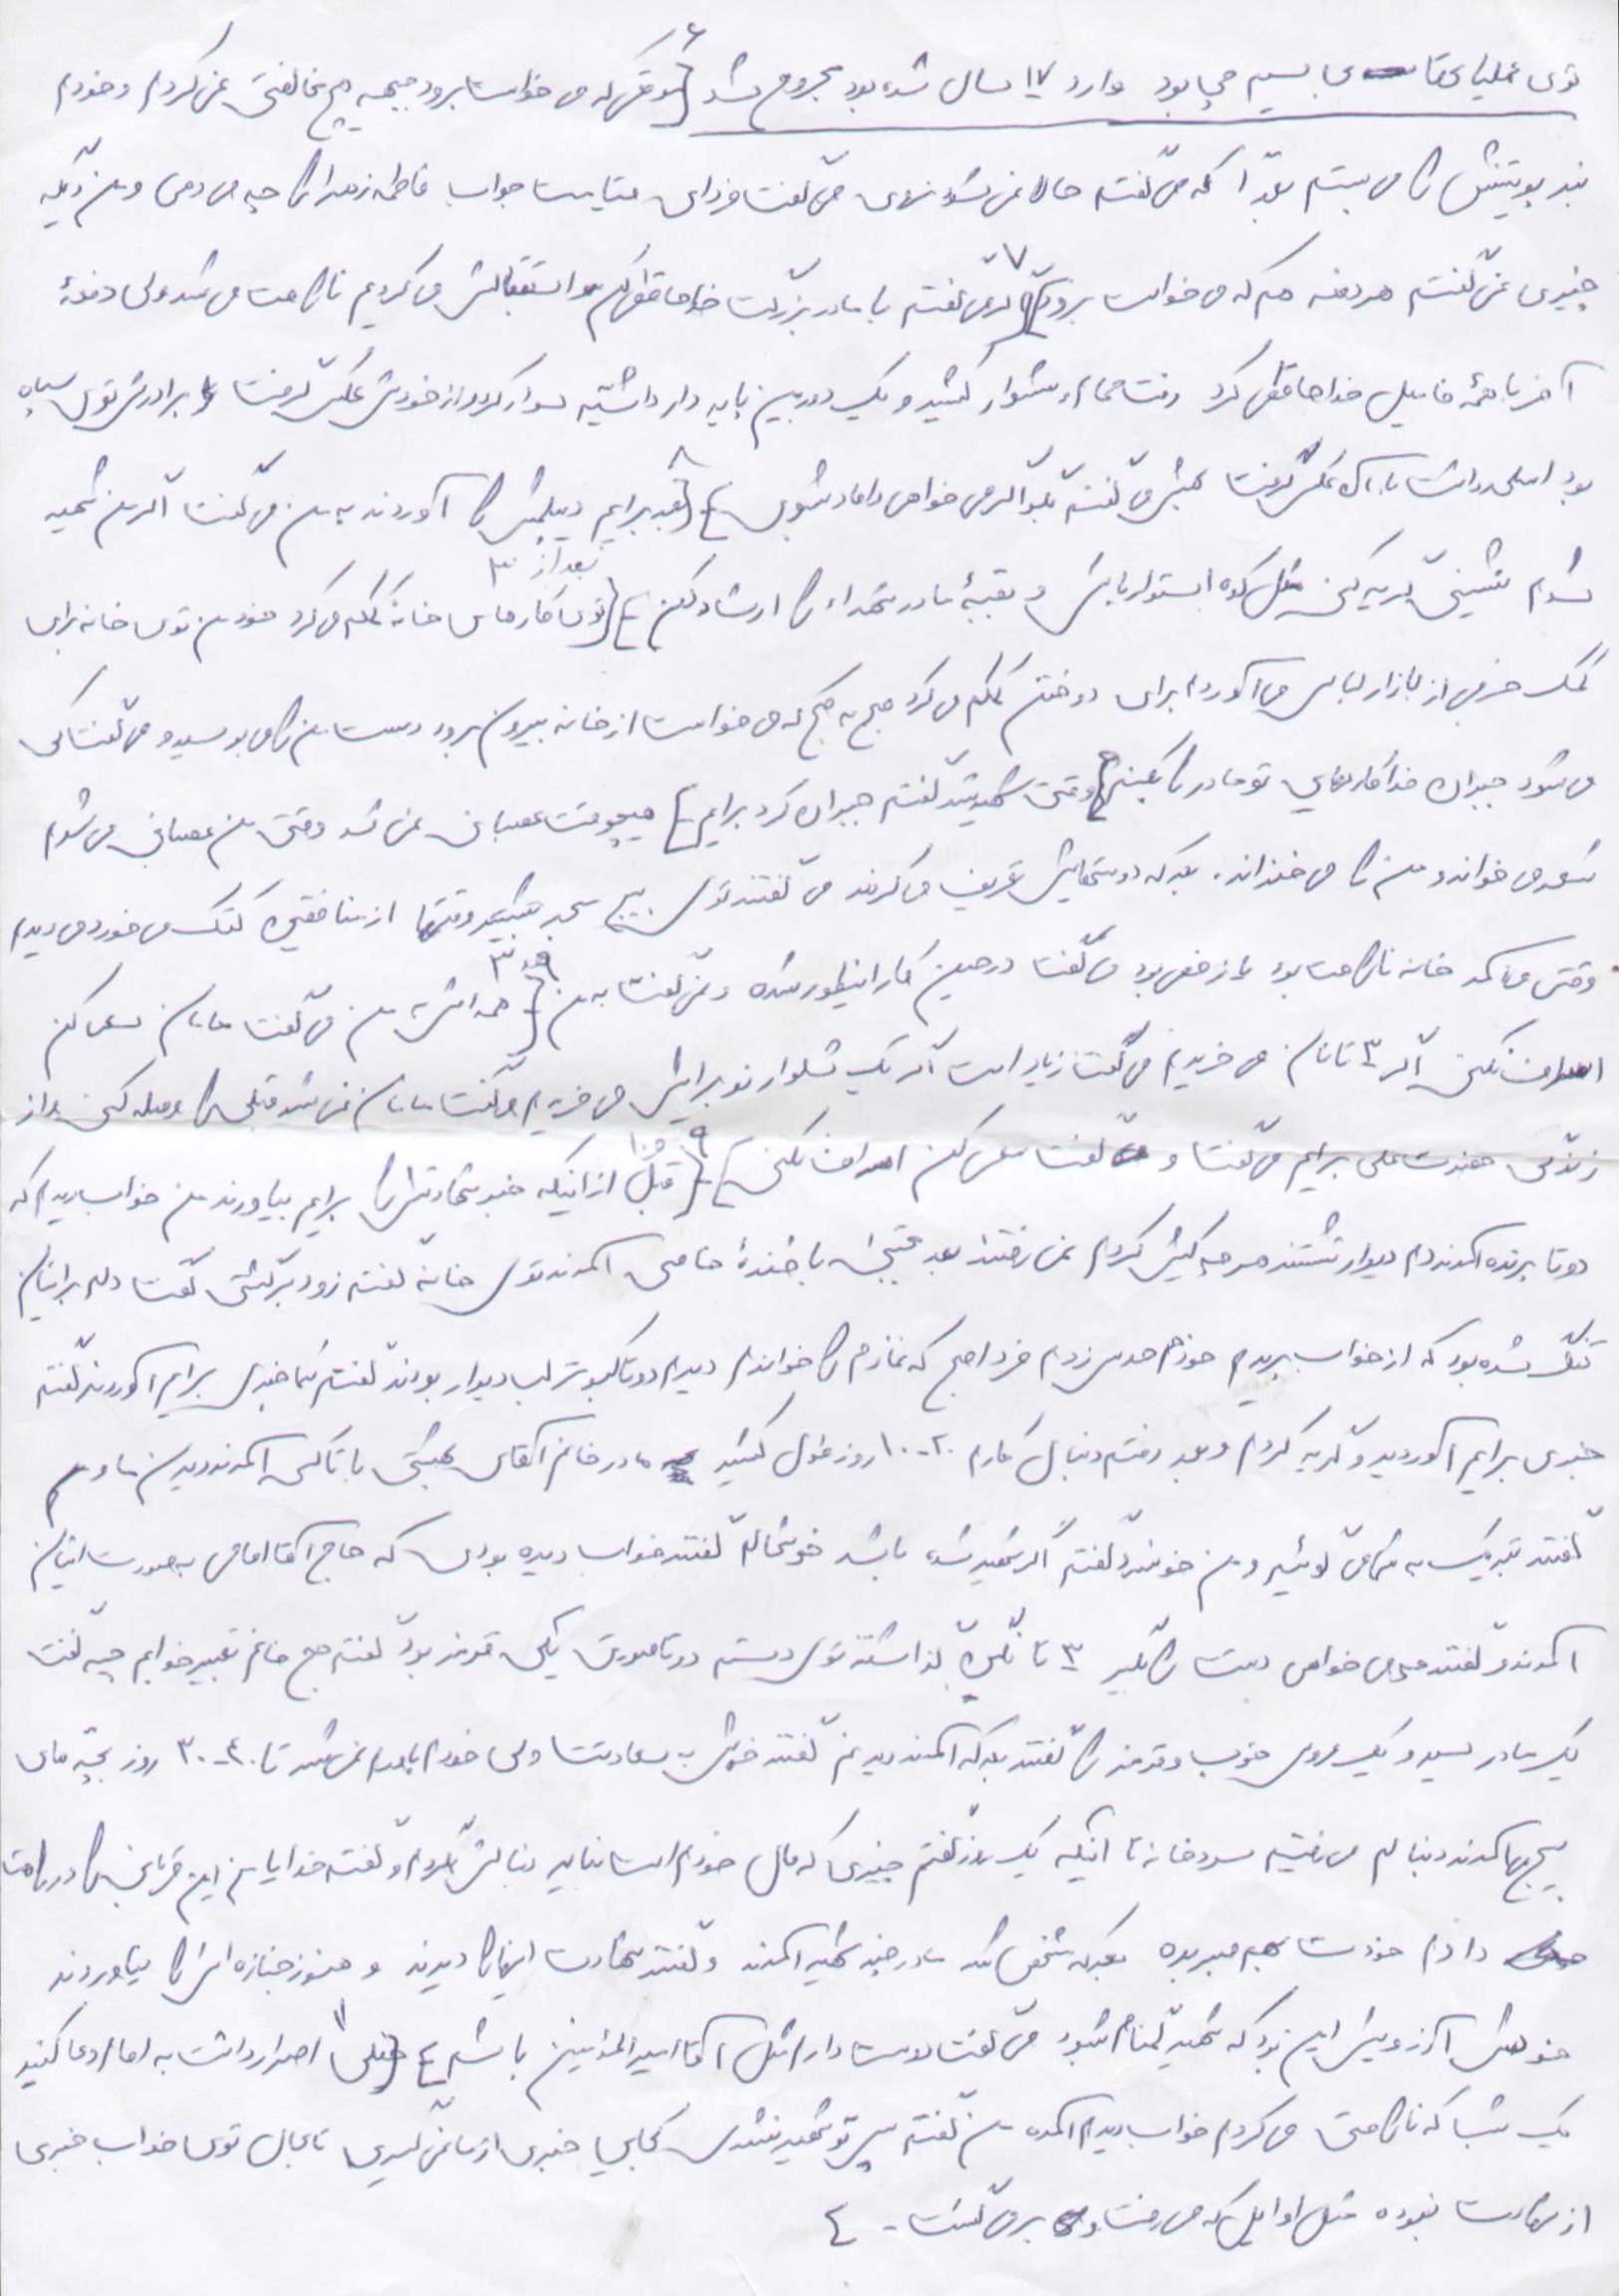 توی عملیاتها بی سیم چی بود وارد ۱۷ سال شده بود مجروح شد } ۶ موقعی که می خواست برود جبهه هیچ مخالفتی نمی کردم و خودم
بند پوتینش را می بستم بعد اگه می گفتم حالا نمی شود نروی می گفت فردای قیامت جواب فاطمه زهرا را چه می دهی و من دیگه
چیزی نمی گفتم هر دفعه هم که می خواست برود ۷ می گفتم با مادر بزرگت خداحافظی کن استقبالش می کردیم ناراحت می شد ولی دفعهٔ
آخر با همهٔ فامیل خداحافظی کرد رفت حمام شلوار کشید و یک دوربین پایه دار داشتیم سوار کرد و از خودش عکس گرفت و برادرش توی سپاه
بود اسلحه داشت با آن عکس گرفت بهش می گفتم مگر می خواهی داماد شوی } ۸ { بعد برایم دیپلمش را آوردند به من می گفت اگر من شهید
شدم ننشینی گریه کنی مثل کوه استوار باش و بقیهٔ مادر شهداء را ارشاد کن } بعد از ۳ { توی کارهای خانه کمکم می کرد خود من توی خانه برای
کمک خرجی از بازار لباس می آوردم برای دوختن کمکم می کرد صبح به صبح که می خواست از خانه بیرون برود دست من را می بوسید و می گفت کی
می شود جبران فداکاریهای تو مادر را بکنم وقتی شهید شد گفتم جبران کرد برایم } هیچوقت عصبانی نمی شد وقتی من عصبانی می شدم
شعر می خواند و من را می خنداند. بعد که دوستهایش تعریف می کردند می گفتند توی بسیج مسجد وقتها از منافقین کتک می خورد می دیدم
وقتی می آمد خانه ناراحت بود یا زخمی بود می گفت در حین کار اینطور شده و نمی گفت به من } بعد ۳ { همه اش به من می گفت مامان سعی کن
اسراف نکنی اگر ۳ تا نان می خریدم می گفت زیاد است اگر یک شلوار نو برایش می خریدم می گفت مامان نمی شد قبلی را وصله کنی و از
زندگی حضرت علی برایم می گفت و می گفت سعی کن اسراف نکنی } ۹ { قبل از اینکه خبر شهادتش را برایم بیاورند من خواب دیدم که
دوتا پرنده آمدند دم دیوار نشستند هر چه کیش کردم نمی رفتند بعد مجتبی با خندهٔ خاصی آمدند توی خانه گفتم زود برگشتی گفت دلم برایتان
تنگ شده بود که از خواب پریدم خودم حدس زدم فردا صبح که نمازم را خواندم دیدم دوتا کبوتر لب دیوار بودند گفتم شما خبری برایم آوردید گفتم
خبری برایم آوردید و گریه کردم و بعد رفتم دنبال کارم ۲۰-۱۰ روز طول کشید مادر خانم آقای بهشتی با تاکسی آمدند دیدن ما و
گفتند تبریک به شما می گوئیم و من خونسرد گفتم اگر شهید شده باشد خوشحالم گفتند خواب دیده بودی که حاج آقا امامی به صورت ایشان
آمدند و گفتند می خواهی دست را بگیر ۳ تا نگین گذاشتند توی دستم دوتا صورتی یکی قرمز بود گفتم حاج خانم تعبیر خوابم چیه گفت
یک مادر سید و یک عروس خوب و قرمز را گفتند بعد که آمدند دیدنم گفتند خوش به سعادتت ولی خودم باورم نمی شد تا ۴۰-۳۰ روز بچه های
بسیج می آمدند دنبالم می رفتیم سردخانه تا اینکه یک روز گفتم چیزی که مال خودم است نباید دنبالش بگردم و گفتم خدایا من این قربانی را در راهت
دادم خودت بهم صبر بده بعد که مشخص شد مادر چند شهید آمدند و گفتند شهادت اینها را دیدند و هنوز جنازه اش را نیاوردند
خودش آرزویش این بود که شهید گمنام شود می گفت دوست دارم مثل آقا امیرالمؤمنین باشم } ۱۱ { خیلی اصرار داشت به امام دعا کنید
یک شب که ناراحتی می کردم خواب دیدم آمده من گفتم پس تو شهید نشدی کجایی خبری از ما نمی گیری تابحال توی خواب خبری
از شهادت نبوده مثل اوایل که می رفت و برمی گشت -